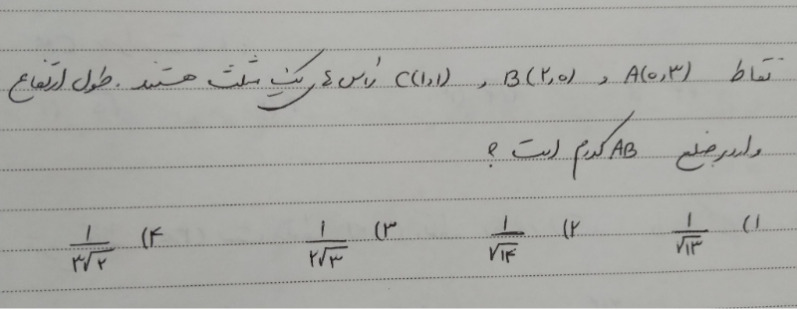 نقاط A(۰,۳) , B(۲,۰) , C(۱,۱) رأس های یک مثلث هستند . طول ارتفاع
وارد بر ضلع AB کدام است ؟
۱) ۱/√۱۳ ۲) ۱/√۱۴ ۳) ۱/۲√۳ ۴) ۱/۳√۲